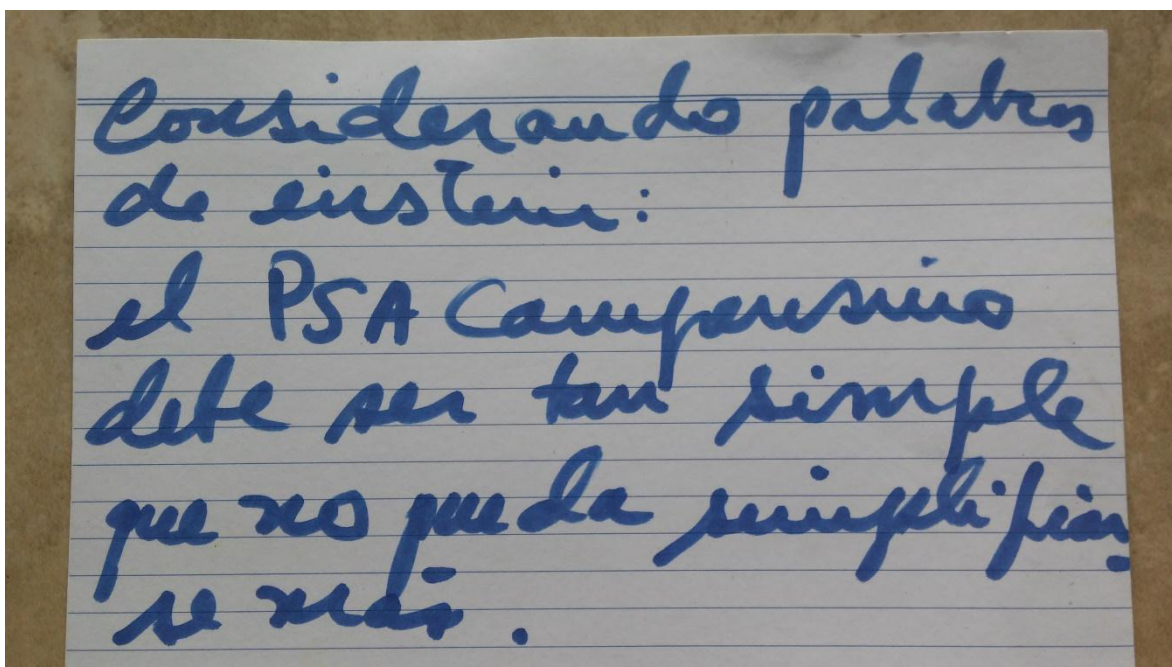 Considerando palabras
de einstein:
el PSA Campesino
debe ser tan simple
que no pueda simplificar
se más.